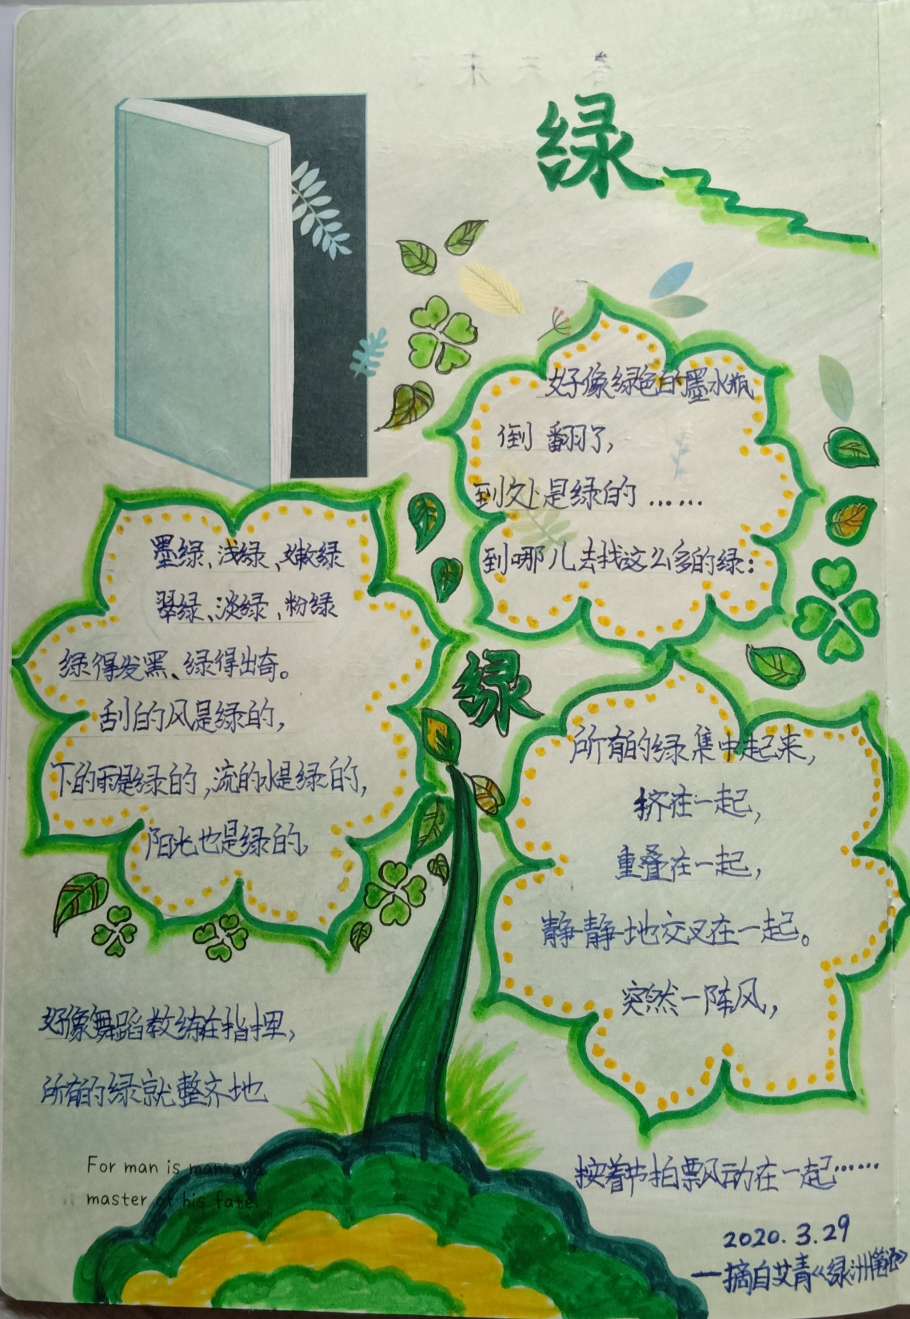 绿
好像绿色的墨水瓶
倒翻了,
到处是绿的……
到哪儿去找这么多的绿:
墨绿、浅绿、嫩绿
翠绿、淡绿、粉绿
绿得发黑、绿得出奇。
刮的风是绿的,
下的雨是绿的,流的水是绿的,
阳光也是绿的,
绿
所有的绿集中起来,
挤在一起,
重叠在一起,
静静地交叉在一起。
突然一阵风,
好像舞蹈教练在指挥,
所有的绿就整齐地
按着节拍飘动在一起……
For man is man and
master of his fate.
2020.3.29
—摘自艾青《绿洲笔记》